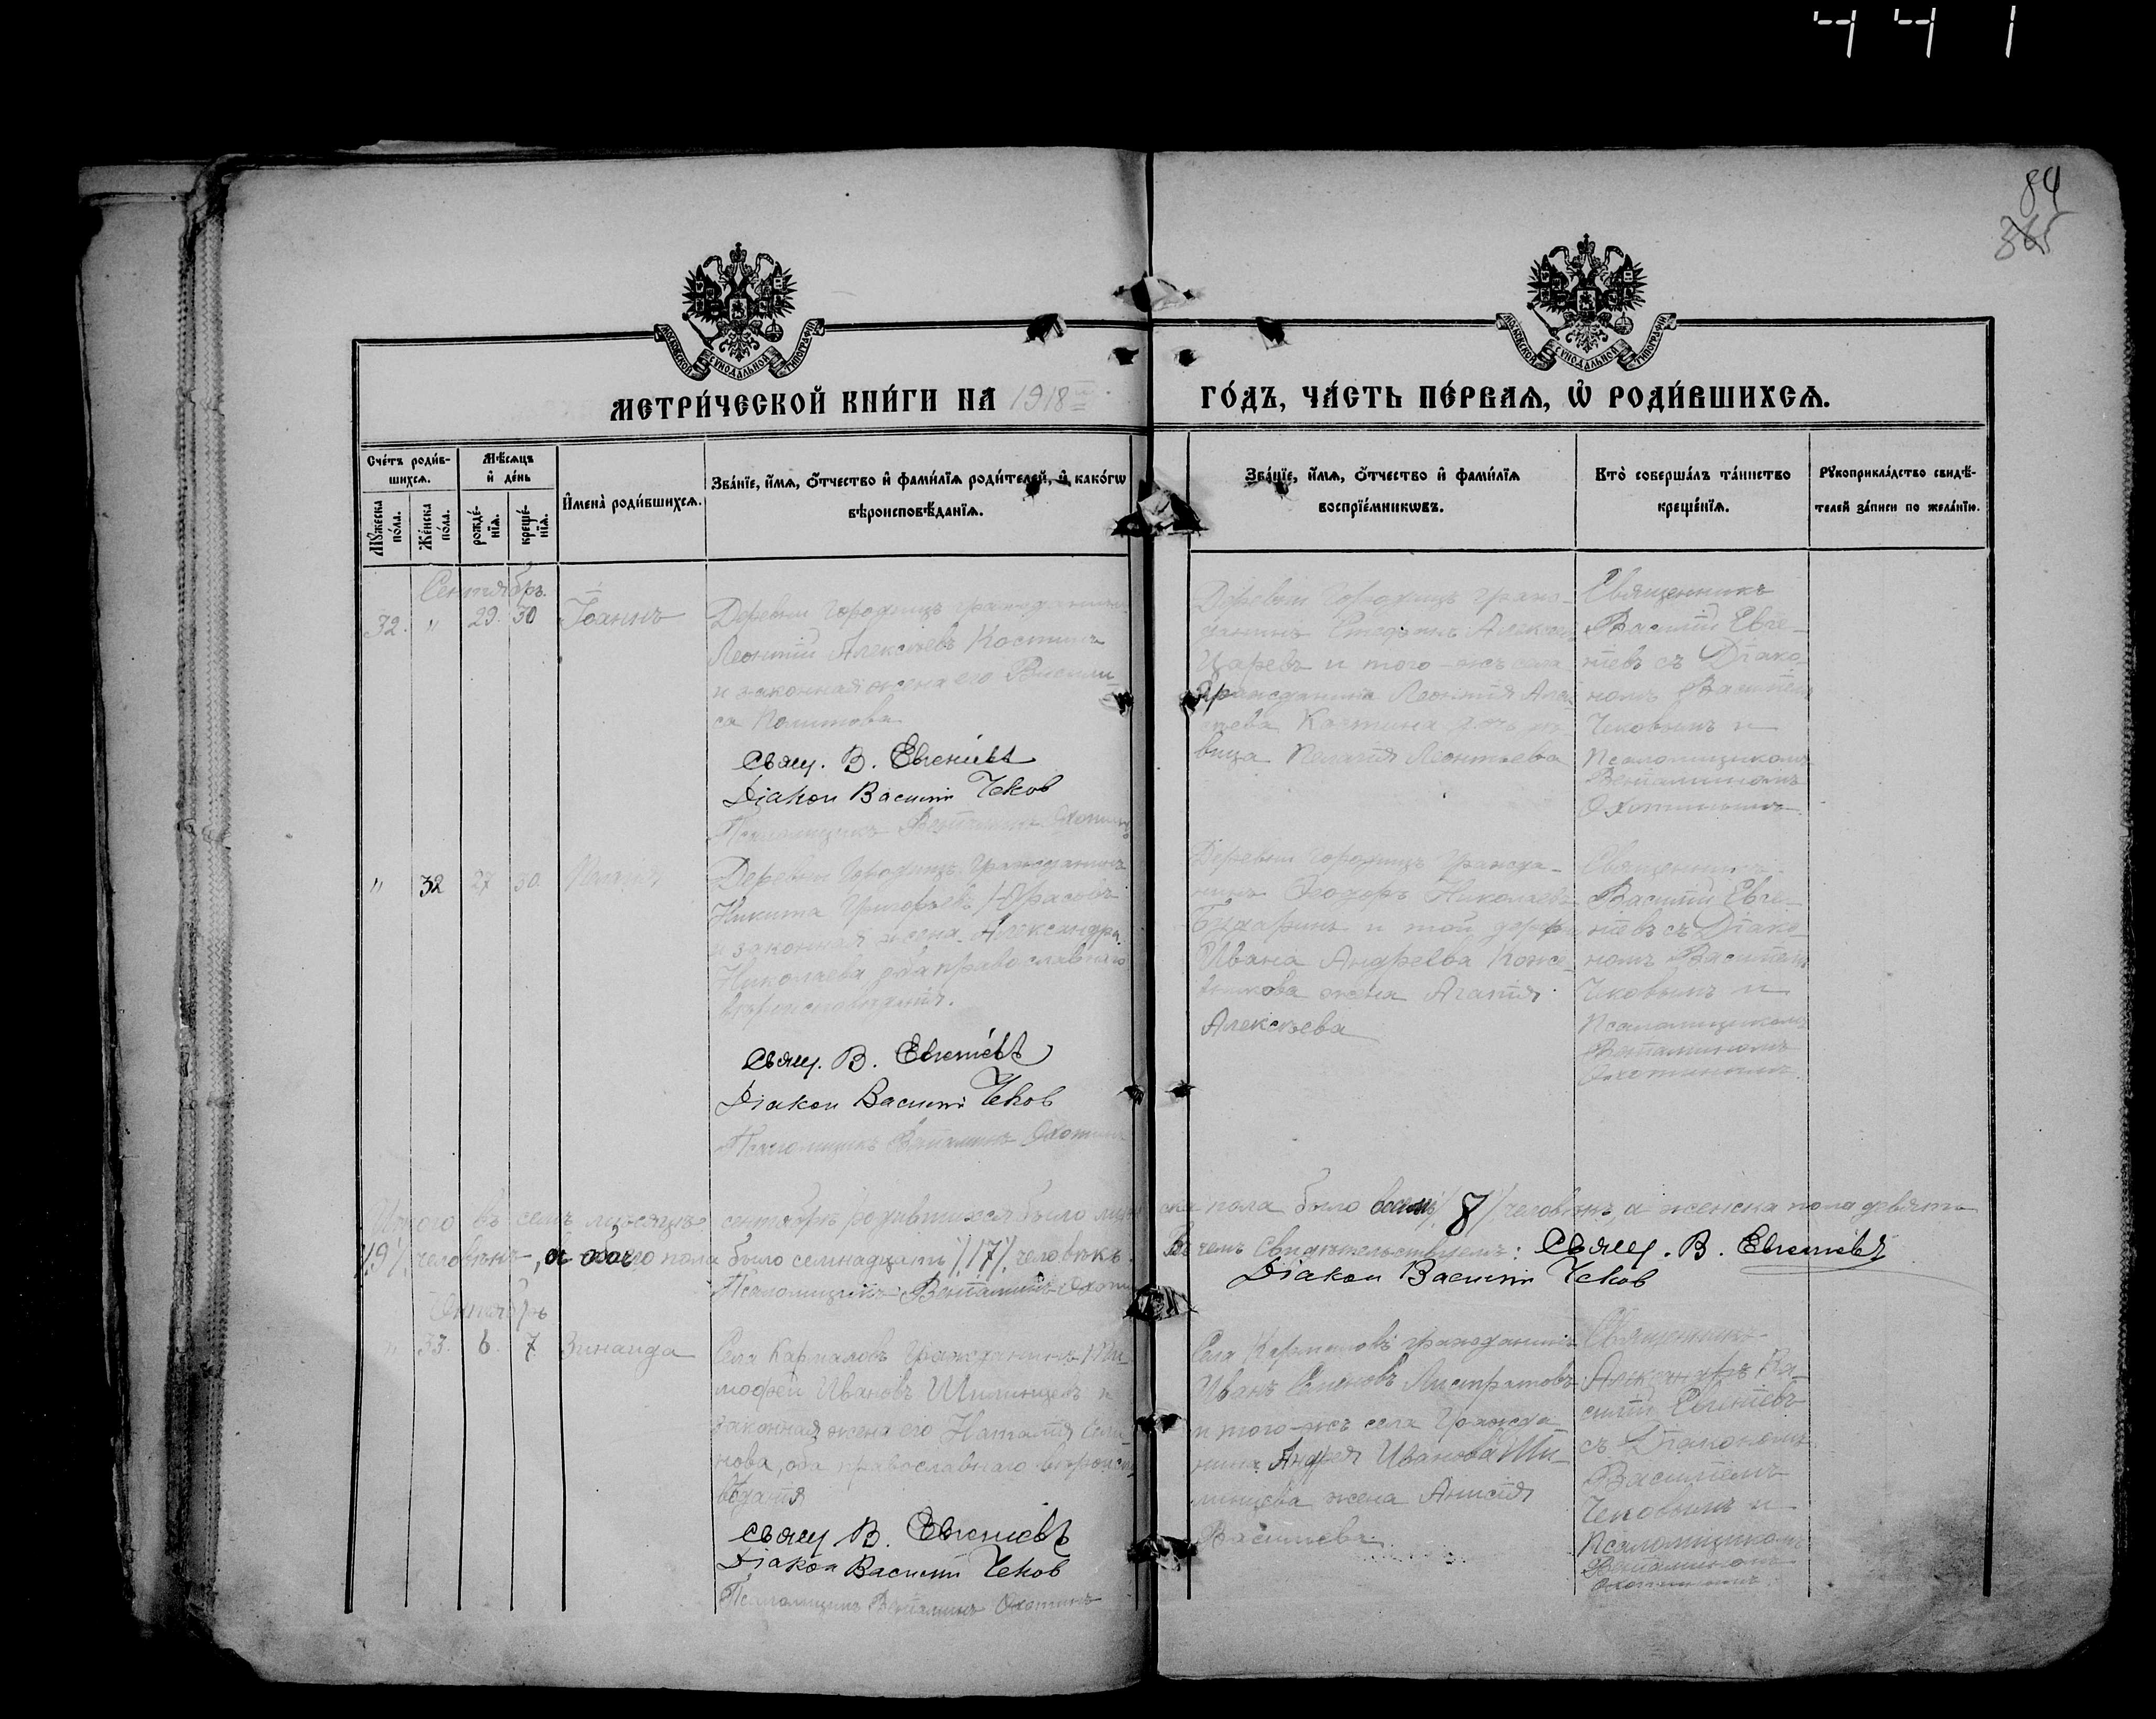 441
84
365
МОСКОВСКОЙ СѴНОДАЛЬНОЙ ТИПОГРАФІИ
МОСКОВСКОЙ СѴНОДАЛЬНОЙ ТИПОГРАФІИ
МЕТРИ́ЧЕСКОЙ КНИ́ГИ НА 1918 ГО́ДЪ, ЧА́СТЬ ПЕ́РВАѦ, Ѡ҆ РОДИ́ВШИХСѦ.
Сче́тъ роди́в-
шихсѧ.
Мꙋ́жеска по́ла.
Же́нска по́ла.
Мѣ́сѧцъ
и҆ де́нь
рожде́-
нїѧ.
креще́-
нїѧ.
И҆мена̀ роди́вшихсѧ.
Зва́нїе, и҆́мѧ, ѻ҆́тчество и҆ фами́лїѧ роди́телей, и҆ како́гѡ
вѣроисповѣ́данїѧ.
Зва́нїе, и҆́мѧ, ѻ҆́тчество и҆ фами́лїѧ
воспрїе́мникѡвъ.
Кто̀ соверша́лъ та́инство
креще́нїѧ.
Рꙋкоприкла́дство свидѣ́-
телей за́писи по жела́нїю.
Сентябрь
32. " 29. 30 Іоаннъ
Деревни Городищъ гражданинъ
Леонтій Алексѣевъ Костинъ
и законная жена его Василис-
са
Свящ. В. Евгеніевъ
Діакон Василій Чеков
Псаломщикъ Веніаминъ Охотинъ
Деревни Городищъ граж-
данинъ Стефанъ
Царевъ и того-же села
гражданина Леонтія Алек-
сѣева Костина дочь дѣ-
вица Пелагія Леонтьева
Священникъ
Василій Евге-
ніевъ съ Діако-
номъ Василіемъ
Чековымъ и
Псаломщикомъ
Веніаминомъ
Охотинымъ.
" 32 27 30. Пелагія
Деревни Городищъ Гражданинъ
Никита Григорьевъ
и законная жена Александра
Николаева, оба православнаго
вѣроисповѣданія.
Свящ. В. Евгеніевъ
Діакон Василій Чеков
Псаломщикъ Веніаминъ Охотинъ
Деревни Городищъ Гражда-
нинъ Ѳеодоръ Николаевъ
и той дерев
Ивана Андреева Коже-
жена Агапія
Алексѣева
Священникъ
Василій Евге-
ніевъ съ Діако-
номъ Василіемъ
Чековымъ и
Псаломщикомъ
Веніаминомъ
Охотинымъ.
Итого въ семъ мѣсяцѣ сентябрѣ родившихся было муже-ска пола было восемь /8/ человѣкъ, а женска пола девять
/9/ человѣкъ, а обоего пола было семнадцать /17/ человѣкъ. Въ чемъ свидѣтельствуемъ: Свящ. В. Евгеніевъ
Псаломщикъ Веніаминъ Охотинъ Діакон Василій Чеков
Октябрь
" 33. 6. 7. Зинаида
Села Кармаловъ Гражданинъ Ти-
мофей Ивановъ Шилинцевъ и
законная жена его Наталія Семе-
нова, оба православнаго вѣроиспо-
вѣданія
Свящ В. Евгеніевъ
Діакон Василій Чеков
Псаломщикъ Веніаминъ Охотинъ
Села Кармаловъ гражданинъ
Иванъ
и того-же села Гражда
нина Андрея Иванова Ши-
линцева жена Анисія
Васильева.
Священникъ
Ва-
силій Евгеніевъ
съ Діакономъ
Василіемъ
Чековымъ и
Псаломщикомъ
Веніаминомъ
Охотинымъ.